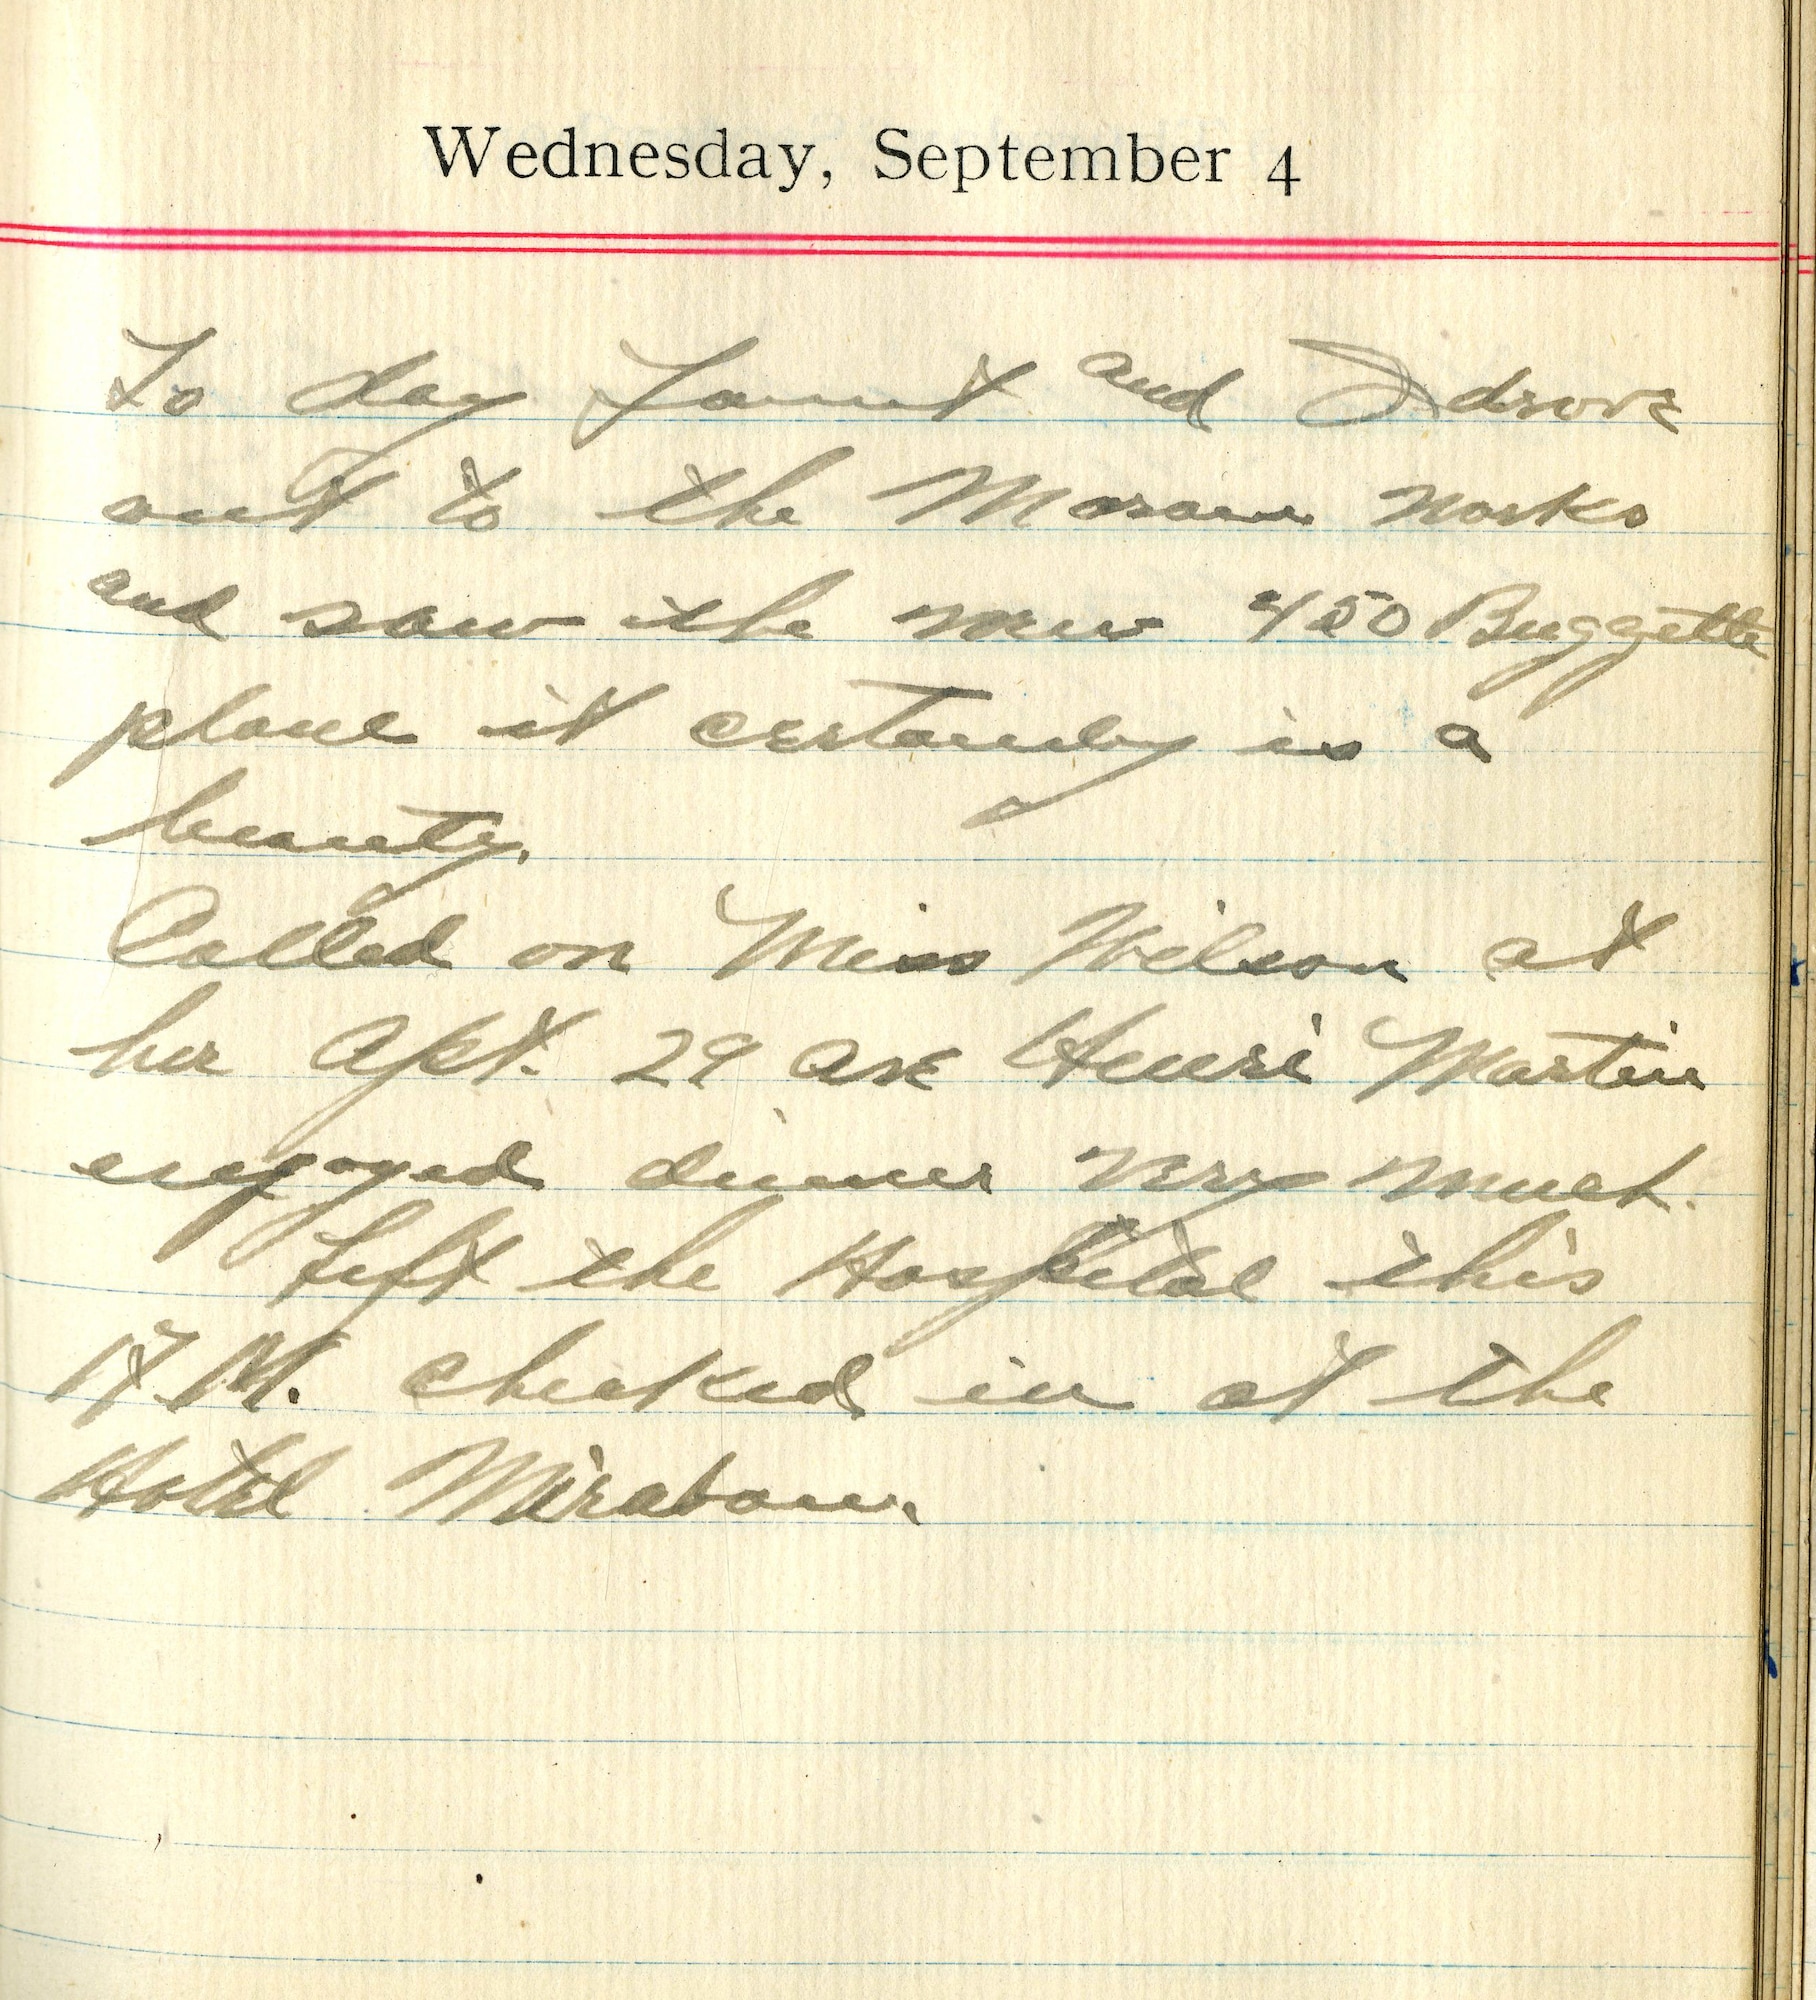 Wednesday, September 4
To day and I drove
out to the Morane Works
and saw the new 450 Buggette
plane it certainly is a
beauty.
Called on Miss Wilson at
her Apt. 29 Ave Henri Martin
enjoyed dinner very much.
Left the Hospital this
P.M. checked in at the
Hotel Mirabeau.